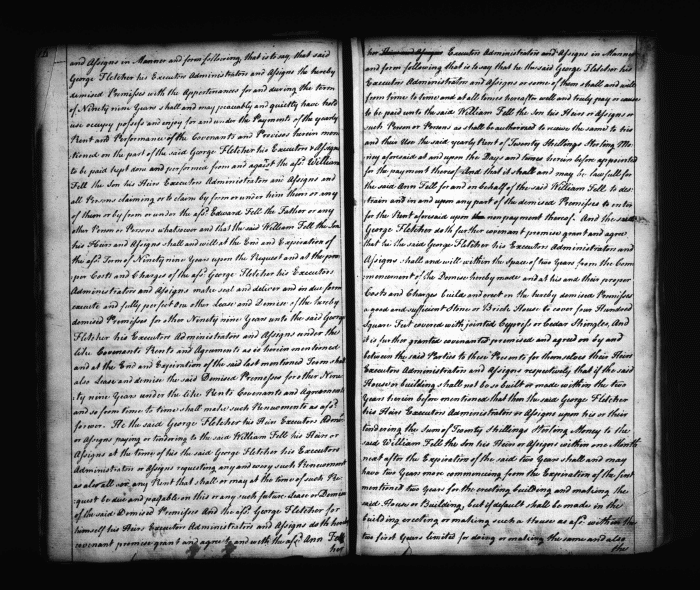 and Assigns in Manner and form following, that is to say, that said
George Fletcher his Executors Administrators and Assigns the hereby
demised Premisses with the Appertenances for and during the term
of Ninety nine Years shall and may peaceably and quietly have hold
use occupy possess and enjoy for and under the Payments of the yearly
Rent and Performance of the Covenants and Provisoes herein men
tioned on the part of the said George Fletcher his Executors & Assigns
to be paid kept done and performed from and against the afsd. William
Fell the Son his Heirs Executors Administrators and Assigns and
all Persons claiming or to claim by form or under him them or any
of them or by form or under the afsd. Edward Fell the Father or any
other Person or Persons whatsoever and that the said William Fell the Son
his Heirs and Assigns shall and will at the End and Expiration of
the afsd. Term of Ninety nine Years upon the Request and at the pro
per Costs and Charges of the afsd. George Fletcher his Executors
Administrators and Assigns make seal and deliver and in due form
execute and fully perfect One other Lease and Demise of the hereby
demised Premisses for other Ninety nine Years unto the said George
Fletcher his Executors Administrators and Assigns under the
like Covenants Rents and Agreements as is herein mentioned
and at the End and Expiration of the said last mentioned Term shall
also Lease and demise the said Demised Premisses for other Nine
ty nine Years under the like Rents Covenants and Agreements
and so from time to time shall make such Renewments as afsd.
forever. He the said George Fletcher his Heirs Executors Admrs.
or Assigns paying or tendering to the said William Fell his Heirs or
Assigns at the time of his the said George Fletcher his Executors
Administrators or Assigns requesting any and every such Renewment
as also all any Rent that shall or may at the time of such Re
quest be due and payable on this or any such future Lease or Demise
of the said Demised Premisses And the afsd. George Fletcher for
himself his Heirs Executors Administrators and Assigns doth hereby
covenant promise grant and agree to and with the afsd. Ann Fell
her
her Executors Administrators and Assigns in Manner
and form following that is to say that he the said George Fletcher his
Executors Administrators and Assigns or some of them shall and will
from time to time and at all times hereafter well and truly pay or cause
to be paid unto the said William Fell the Son his Heirs or Assigns or
such Person or Persons as shall be authorized to receive the same to his
and their Use the said yearly Rent of Twenty Shillings Sterling Mo
ney aforesaid at and upon the Days and times herein before appointed
for the payment thereof And that it shall and may be lawfull for
the said Ann Fell for and on behalf of the said William Fell to des
train and in and upon any part of the demised Premisses to enter
for the Rent aforesaid upon non payment thereof. And the said
George Fletcher doth further covenant promise grant and agree
that he the said George Fletcher his Executors Administrators and
Assigns shall and will within the Space of two Years from the Com
mencement of the Demise hereby made and at his and their proper
Costs and Charges build and erect on the hereby demised Premisses
a good and sufficient Stone or Brick House to cover four Hundred
Square Feet covered with jointed Cypress or Cedar Shingles, And
it is further granted covenanted promised and agreed on by and
between the said Parties to these Presents for themselves their Heirs
Executors Administrators and Assigns respectively that if the said
House or building shall not be so built or made within the two
Years herein before mentioned that then the said George Fletcher
his Heirs Executors Administrators or Assigns upon his or their
tendering the Sum of Twenty Shillings Sterling Money to the
said William Fell the Son his Heirs or Assigns within one Month
next after the Expiration of the said two Years shall and may
have two Years more commencing from the Expiration of the first
mentioned two Years for the erecting building and making the
said House or Building, but if default shall be made in the
building erecting or making such a House as afsd. within the
two first Years limited for doing or making the same and also
the